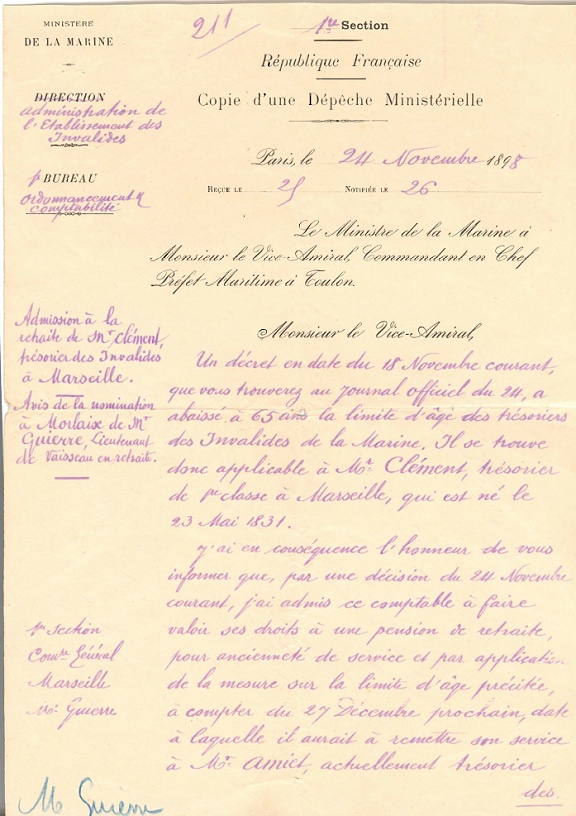 MINISTÈRE
DE LA MARINE
DIRECTION
administration de
l'Etablissement des
Invalides
1er BUREAU
Ordonnancement &
comptabilité
211
1re Section
République Française
Copie d'une Dépêche Ministérielle
Paris, le 24 Novembre 1898
REÇUE LE 25 NOTIFIÉE LE 26
Le Ministre de la Marine à
Monsieur le Vice-Amiral, Commandant en Chef
Préfet Maritime à Toulon.
Admission à la
retraite de Mr Clément,
trésorier des Invalides
à Marseille.
Avis de la nomination
à Morlaix de Mr
Guierre, Lieutenant
de Vaisseau en retraite.
Monsieur le Vice-Amiral,
Un décret en date du 18 Novembre courant,
que vous trouverez au Journal officiel du 24, a
abaissé à 65 ans la limite d'âge des trésoriers
des Invalides de la Marine. Il se trouve
donc applicable à Mr. Clément, trésorier
de 1re classe à Marseille, qui est né le
23 Mai 1831.
J'ai en conséquence l'honneur de vous
informer que, par une décision du 24 Novembre
courant, j'ai admis ce comptable à faire
valoir ses droits à une pension de retraite,
pour ancienneté de service et par application
de la mesure sur la limite d'âge précitée,
à compter du 27 Décembre prochain, date
à laquelle il aurait à remettre son service
à Mr. Amiet, actuellement trésorier
des
1re Section
Comre Général
Marseille
Mr Guierre
M Guierre